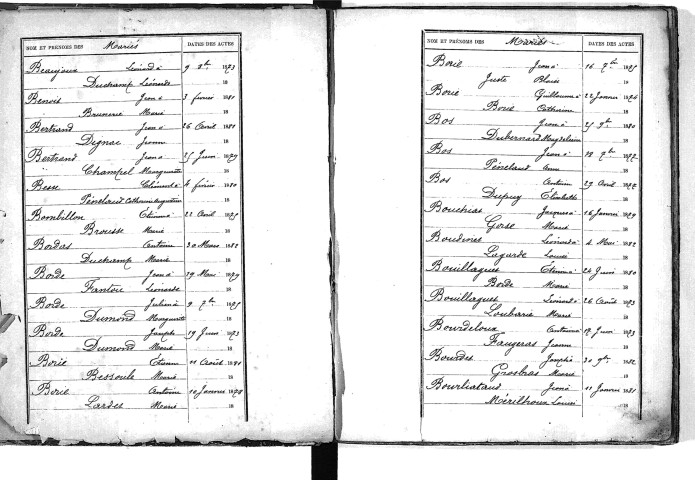 NOM ET PRÉNOMS DES Mariés DATES DES ACTES
Beaujoux Léonard à 9 8bre 1873
Duchamp Léonarde 18
Benoit Jean à 3 février 1880
Brunerie Marie 18
Bertrand Jean à 26 Avril 1880
Dignac Jeanne 18
Bertrand Jean à 25 Juin 1879
Champel Marguerite 18
Besse Léonard à 4 février 1880
Pénelaud Catherine 18
Bombillon Étienne à 22 Avril 1879
Brousse Marie 18
Bordas Antoine 30 Mars 1882
Duchamp Marie 18
Borde Jean à 29 Mai 1879
Fantou Léonarde 18
Borde Julien à 9 7bre 1875
Dumond Marguerite 18
Borde Joseph 29 Juin 1873
Dumond Marie 18
Borie Étienne 11 Août 1881
Bessoule Marie 18
Borie Antoine 11 Janvier 1878
Lardes Marie 18
NOM ET PRÉNOMS DES Mariés DATES DES ACTES
Borie Jean à 16 7bre 1875
Juste Blaise 18
Borie Guillaume à 22 Janvier 1876
Borie Catherine 18
Bos Jean à 25 9bre 1880
Dubernard Magdeleine 18
Bos Jean à 18 7bre 1872
Pénelaud Anne 18
Bos Antoine 29 Avril 1872
Dupuy Élisabeth 18
Bouchias Jacques à 16 Janvier 1879
Gorse Marie 18
Boudinet Léonard à 4 Mai 1882
Lagarde Louise 18
Bouillaguet Étienne à 24 Juin 1880
Borde Marie 18
Bouillaguet Léonard à 26 Août 1873
Loubarie Marie 18
Bourdeloux Antoine à 19 Juin 1873
Faugeras Jeanne 18
Bourdes Joseph à 30 9bre 1882
Grosbras Marie 18
Bourliataud Jean à 11 Janvier 1881
Mérilhoux Louise 18